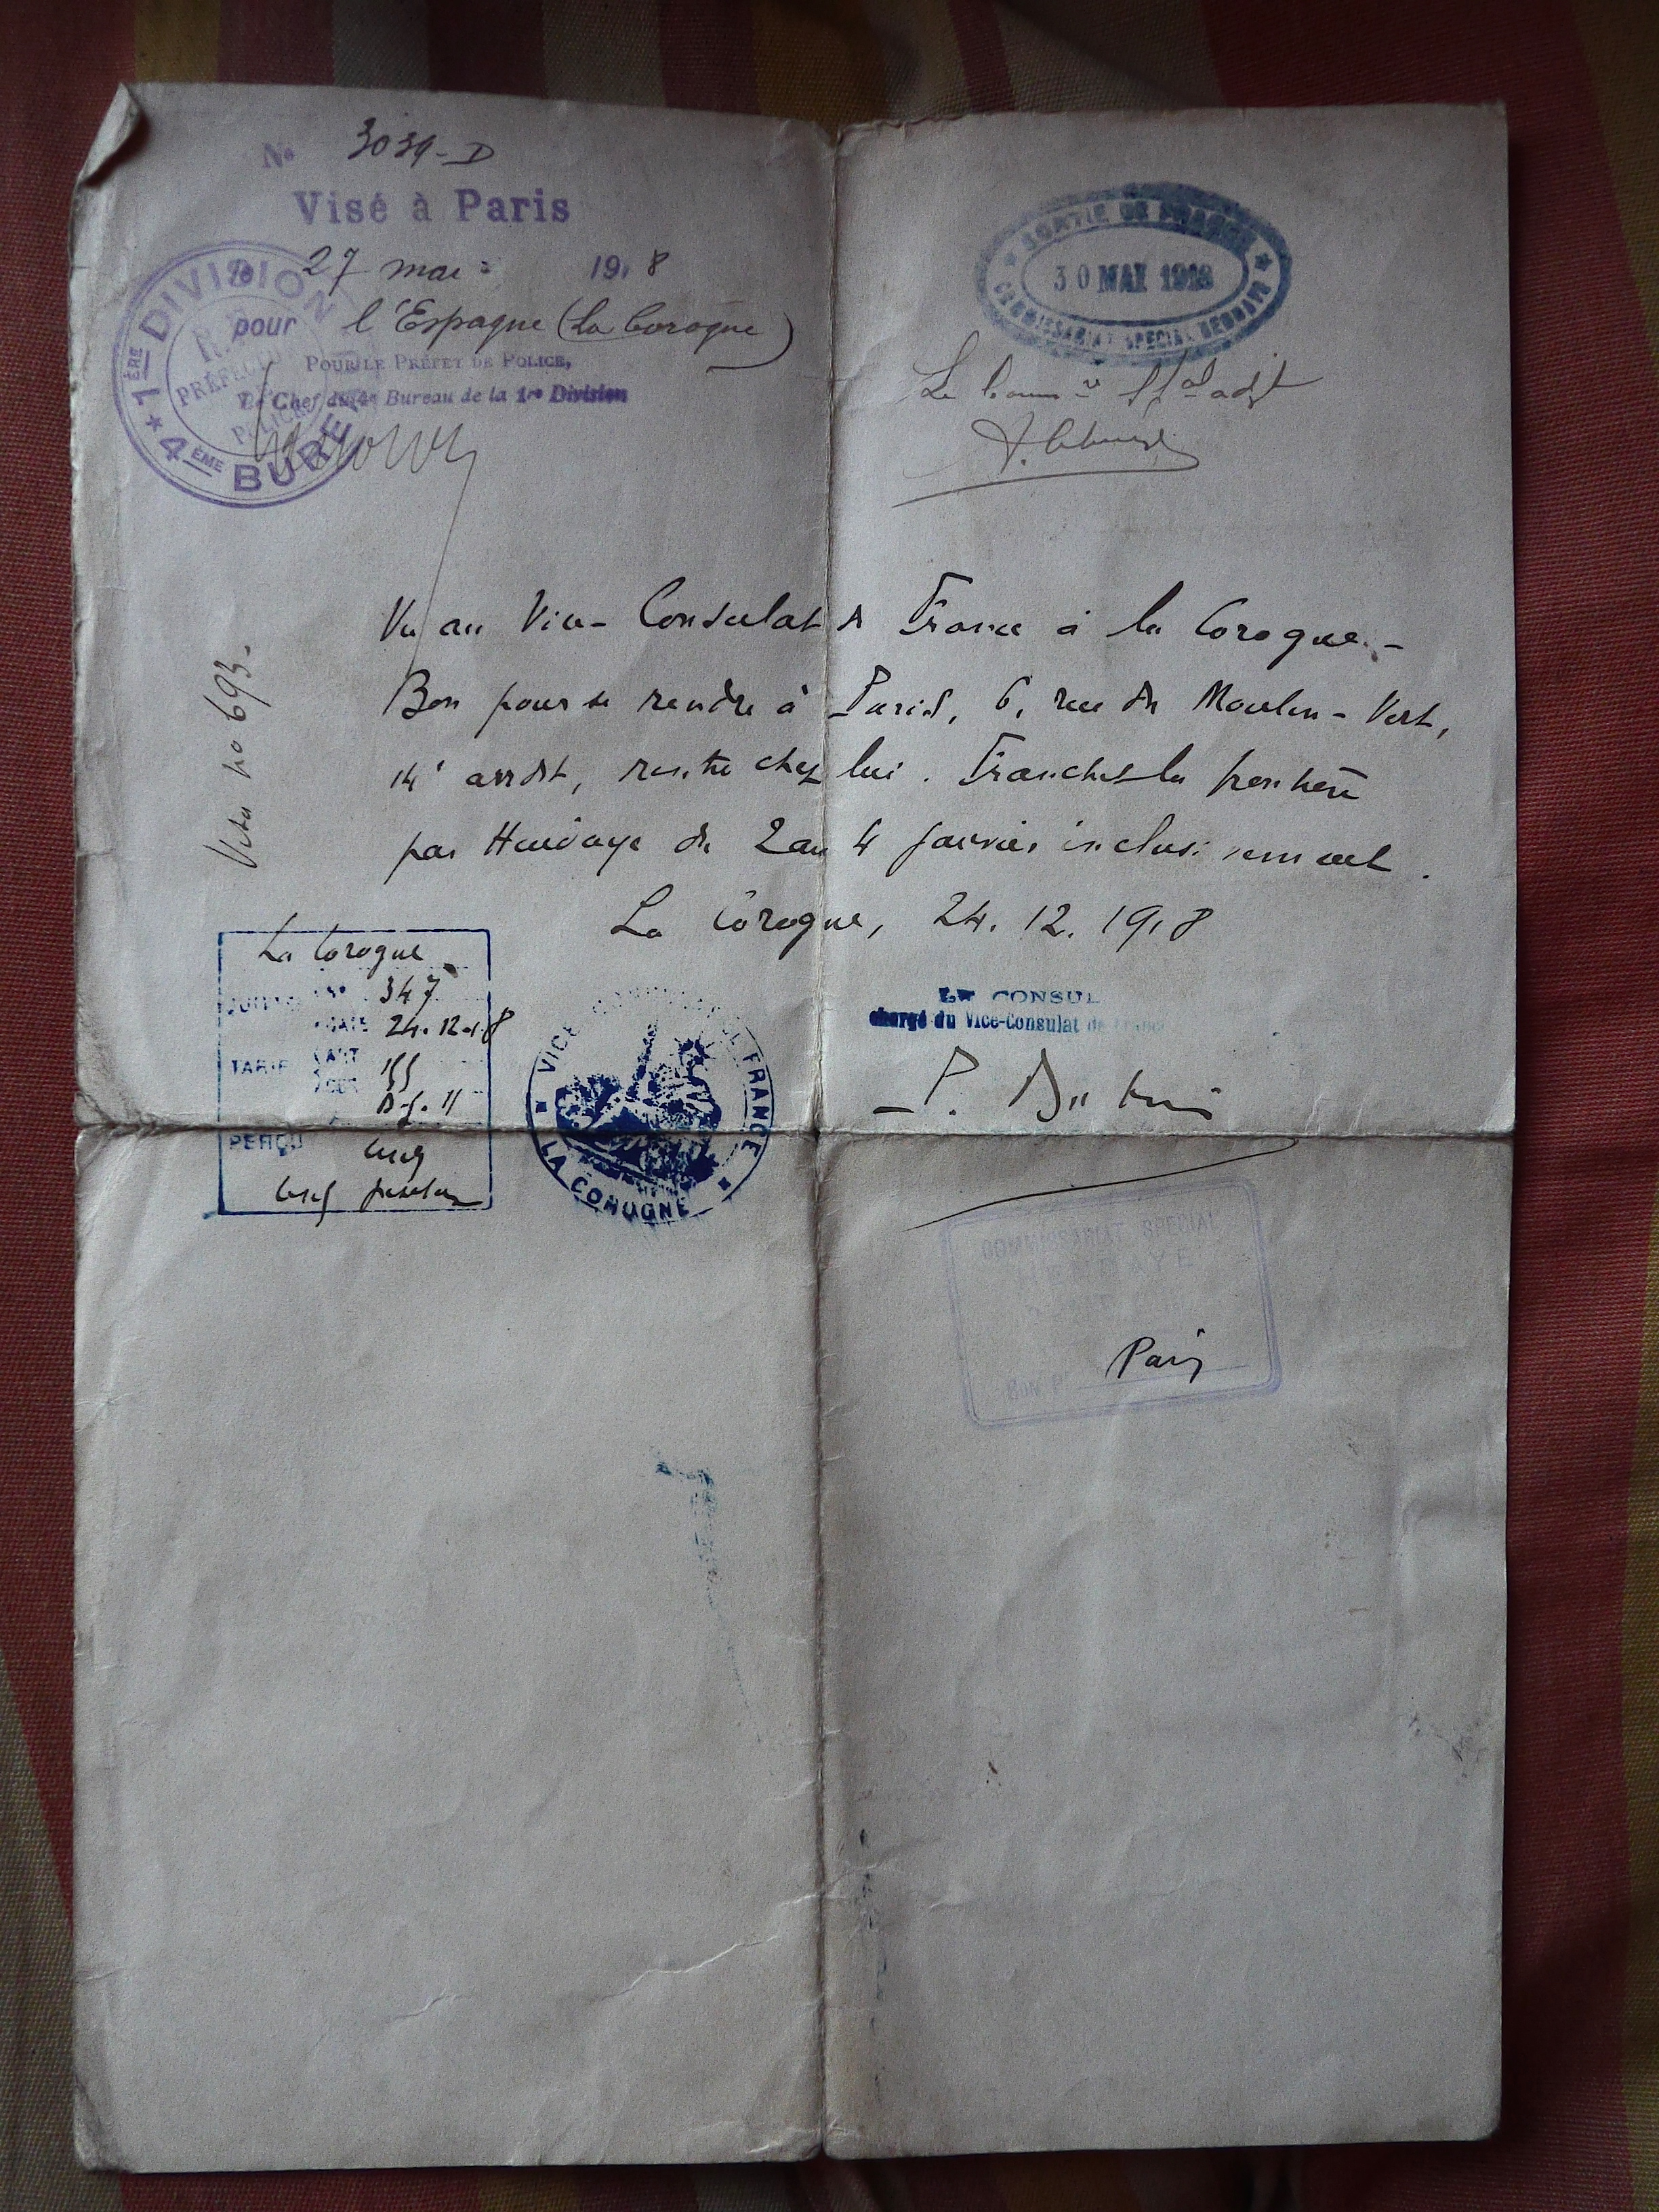 No 3039-D
Visé à Paris
le 27 mai 1918
pour l'Espagne (La Corogne)
POUR LE PRÉFET DE POLICE,
Le Chef du 4e Bureau de la 1re Division
1ÈRE DIVISION
PRÉFECTURE
POLICE
4ÈME BUREAU
SORTIE DE FRANCE
30 MAI 1918
COMMISSARIAT SPECIAL HENDAYE
Visa no 693-
Vu au Vice-Consulat de France à la Corogne.-
Bon pour se rendre à Paris, 6, rue du Moulin-Vert,
14e arrdt, rentre chez lui. Franchit la frontière
par Hendaye du 2 au 4 janvier inclusivement.
La Corogne, 24.12.1918
La Corogne
No 347
DATE 24-12-18
TARIF ART 155
PERÇU
VICE CONSULAT DE FRANCE
LA COROGNE
LE CONSUL
chargé du Vice-Consulat de France
COMMISSARIAT SPECIAL
HENDAYE
Bon pr Paris